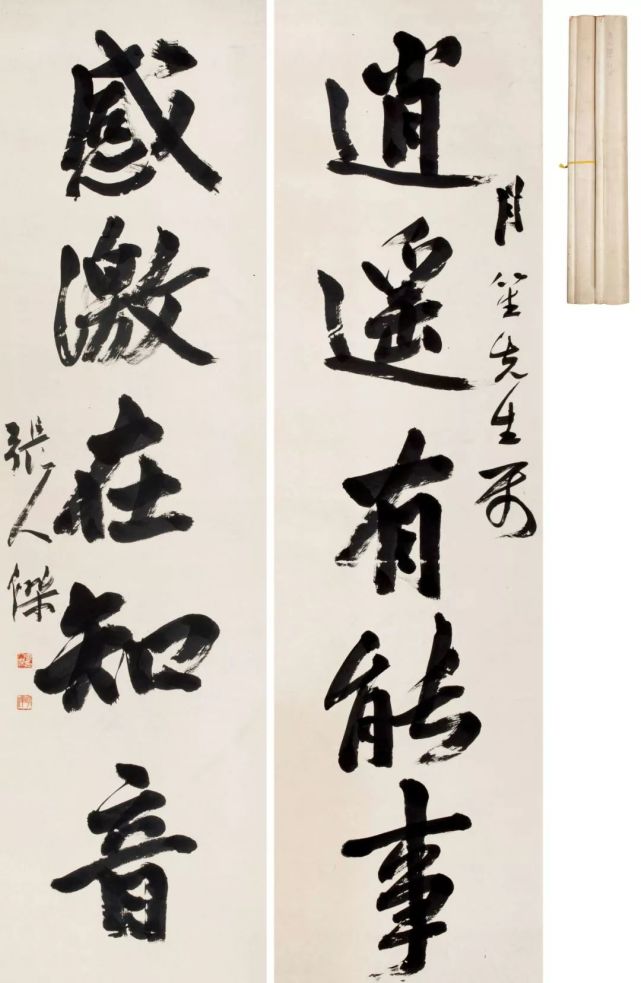 逍遥有能事
月笙先生属
感激在知音
张人傑